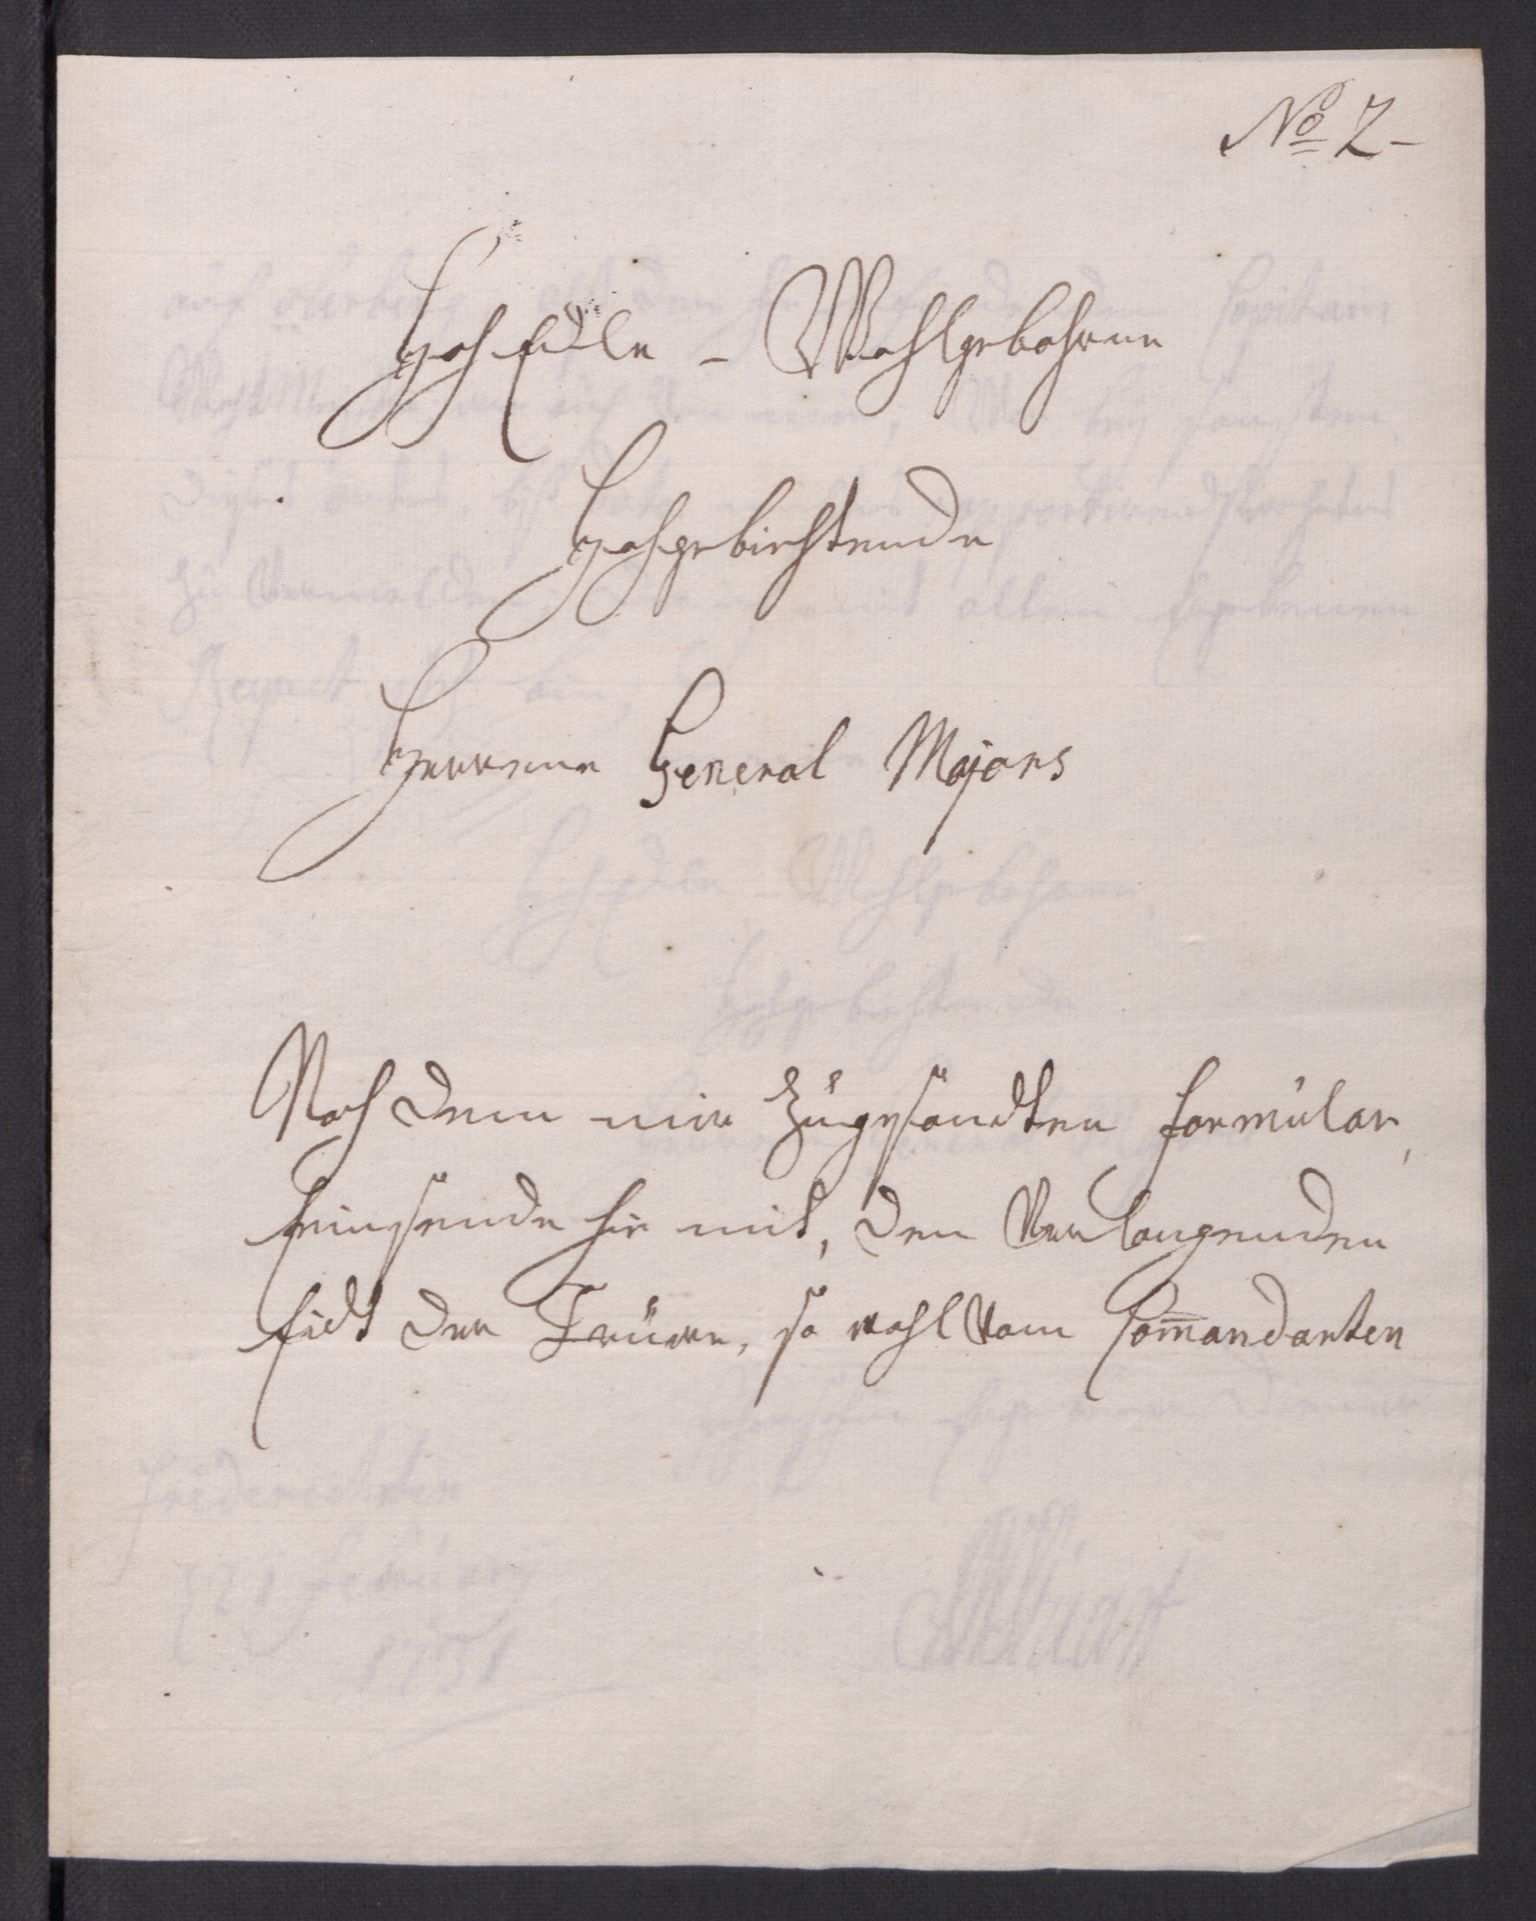 No 2-
HochEdle - Wohlgebohrne
Hochgebiethende
Herren General Majors
Nach dem mir Zugesandten formular,
Einsende hie mit, den Verlangenden
Eidt der Treüe, so wohl Vom Com̅andanten